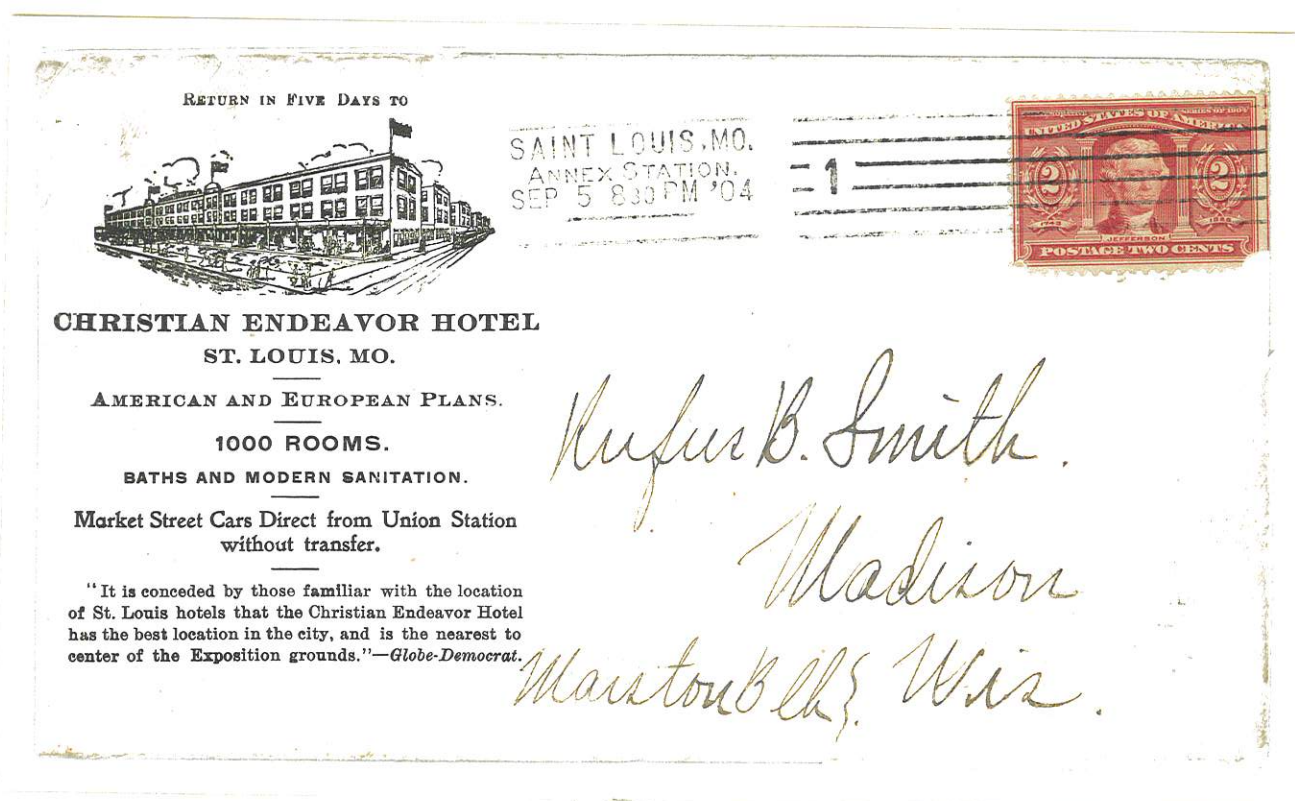 RETURN IN FIVE DAYS TO
CHRISTIAN ENDEAVOR HOTEL
ST. LOUIS, MO.
AMERICAN AND EUROPEAN PLANS.
1000 ROOMS.
BATHS AND MODERN SANITATION.
Market Street Cars Direct from Union Station
without transfer.
"It is conceded by those familiar with the location
of St. Louis hotels that the Christian Endeavor Hotel
has the best location in the city, and is the nearest to
center of the Exposition grounds."—Globe-Democrat.
SAINT LOUIS, MO.
ANNEX STATION.
SEP 5 830 PM '04
1
SERIES OF 1904
UNITED STATES OF AMERICA
2 2
1743 1826
JEFFERSON
POSTAGE TWO CENTS
Rufus B. Smith.
Madison
Marston Blk. Wis.